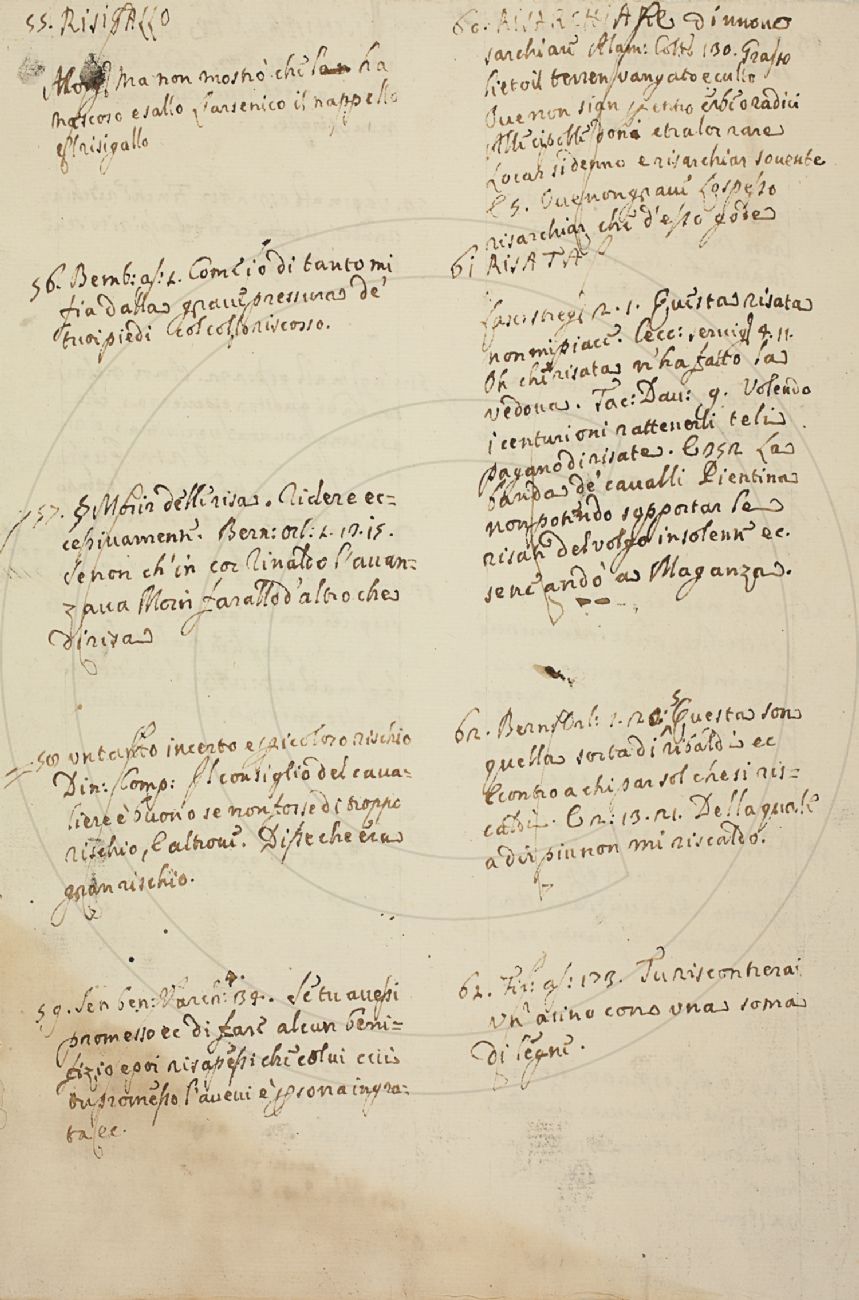 55. RISIGALLO
Morg. Ma non mostrò che l'ha
nascoso e sallo L'arsenico il nappello
e'l risigallo
56. Bemb: as: 1. Com'ẽ io di tanto mi
sia dalla grave pressura de'
tuoi piedi col collo riscosso.
57. § Morir delle risa. Ridere ec-
cessivamente. Bern: orl: 1. 17. 15.
Se non ch'in cor Rinaldo l'avan-
zava Morir farallo d'altro che
di risa
58 un tanto incerto e pericoloso rischio
Din: Comp: Il consiglio del cava-
liere è buono se non fosse di troppo
rischio, E altrove. Disse che era
gran rischio.
59. Sen ben: Varch: 4. 34. Se tu avessi
promesso ec di fare alcun beni-
fizio e poi risapessi che colui cui
tu promesso l'avevi è persona ingra-
ta ec.
60. RISARCHIARE di nuovo
sarchiare Alam: Colt: 130. Grasso
lieto il terren vangato e culto
Ove non sian dentro erbe o radici
Alle cipolle doni e tra lor rare
Locar si denno e risarchiar sovente
E 5. Ove non grave Lo spesso
risarchiar che d'esso gode
61 RISATA
Lasc: streg: 2. 1. Questa risata
non mi piace. Cecc: servig: 4. 11.
Oh che risata n'ha fatto la
vedova. Tac: Dav: 9. Volendo
i centurioni rattenerli teli
pagano di risate. E 252 La
banda de' cavalli Pientina
non potendo sopportar le
risate del volgo insolente ec.
se n'andò a Maganza.
62. Bern: Orl: 1. 22. 5 Questa son
quella sorta di ribaldi ec
Econtro a chi par sol che si ris-
caldi. E 2: 13. 21. Della quale
a dir più non mi riscaldo.
62. Fir: as: 173. Tu riscontrerai
un asino con una soma
di legne.